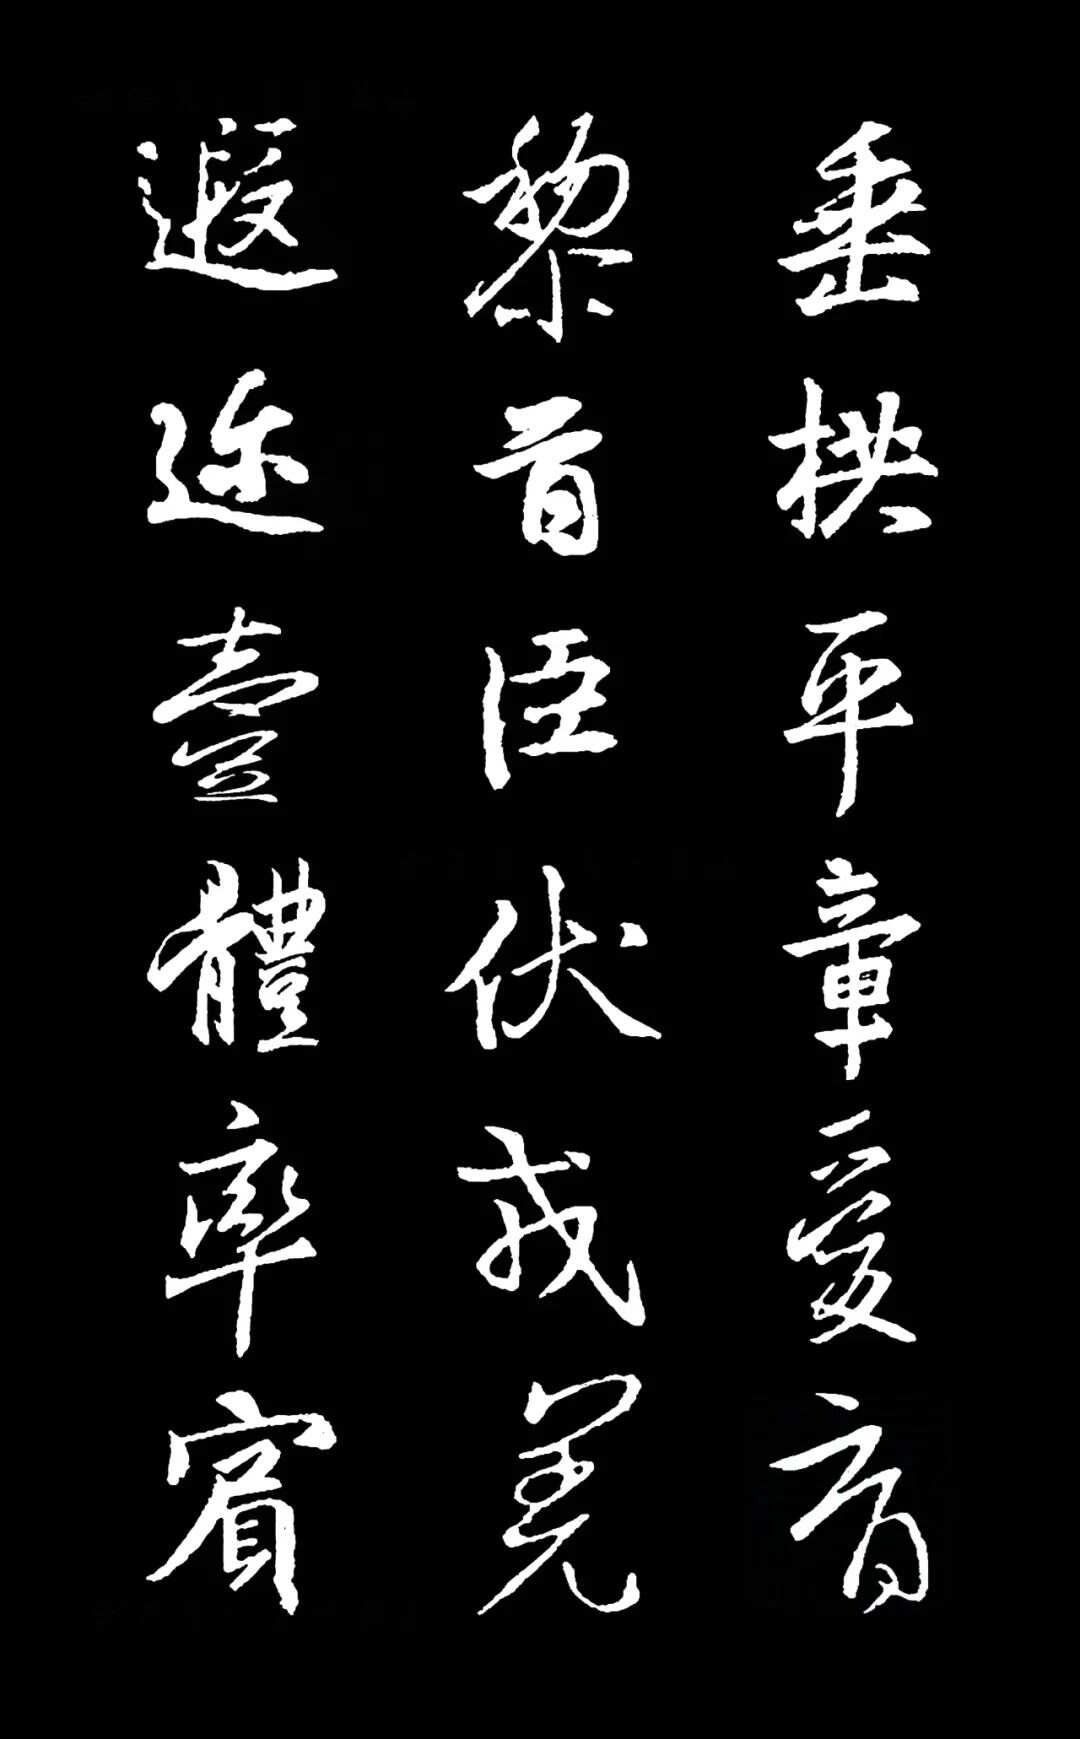 垂拱平章愛育
黎首臣伏戎羌
遐迩壹體率賓